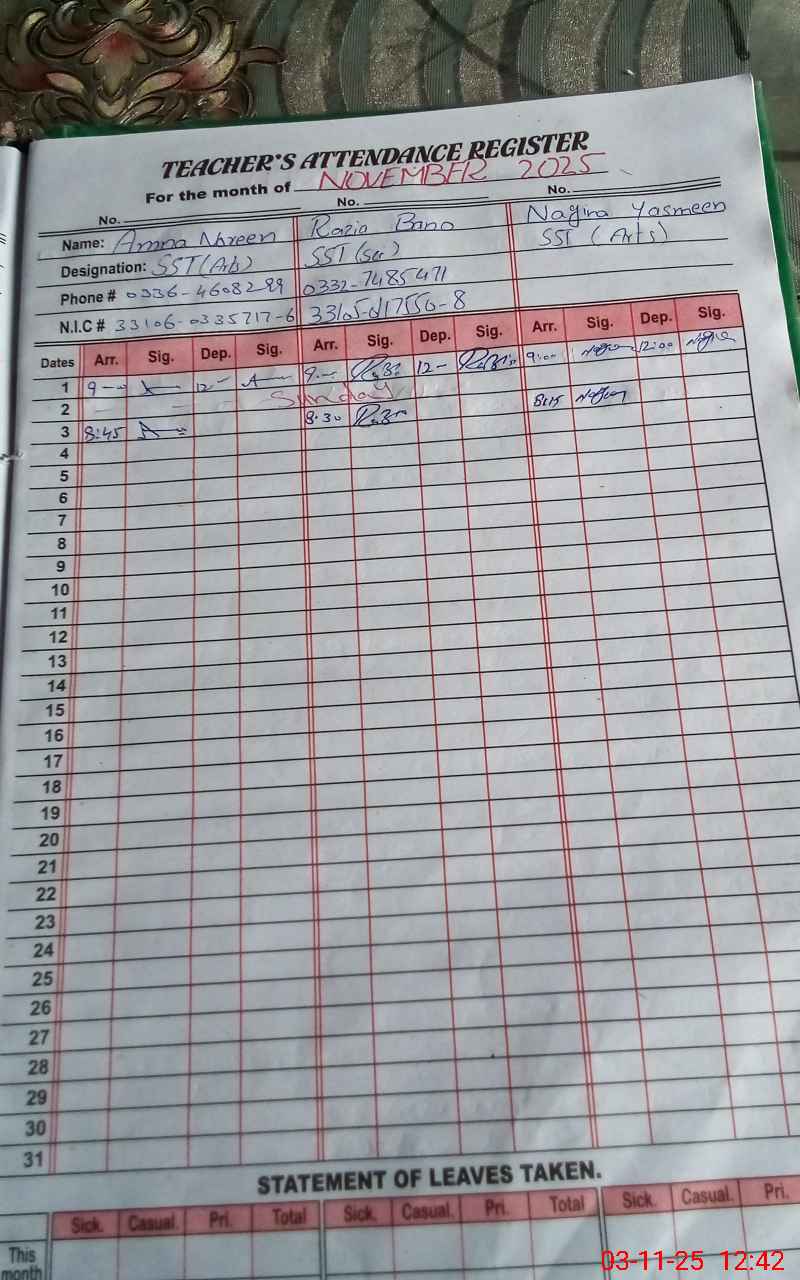 TEACHER'S ATTENDANCE REGISTER
For the month of NOVEMBER 2025
No. No. No.
Name: Amna Noreen Razia Bano Nagina Yasmeen
Designation: SST (Arb) SST (Sci) SST (Arts)
Phone # 0336-4608299 0332-7485471
N.I.C # 33106-0335717-6
Dates Arr. Sig. Dep. Sig. Arr. Sig. Dep. Sig. Arr. Sig. Dep. Sig.
1 9 12 9 12 9:00 12:00
2 Sunday
3 8:45 8:30 8:15
4
5
6
7
8
9
10
11
12
13
14
15
16
17
18
19
20
21
22
23
24
25
26
27
28
29
30
31
STATEMENT OF LEAVES TAKEN.
Sick. Casual. Pri. Total Sick. Casual. Pri. Total Sick. Casual. Pri.
This
month
03-11-25 12:42